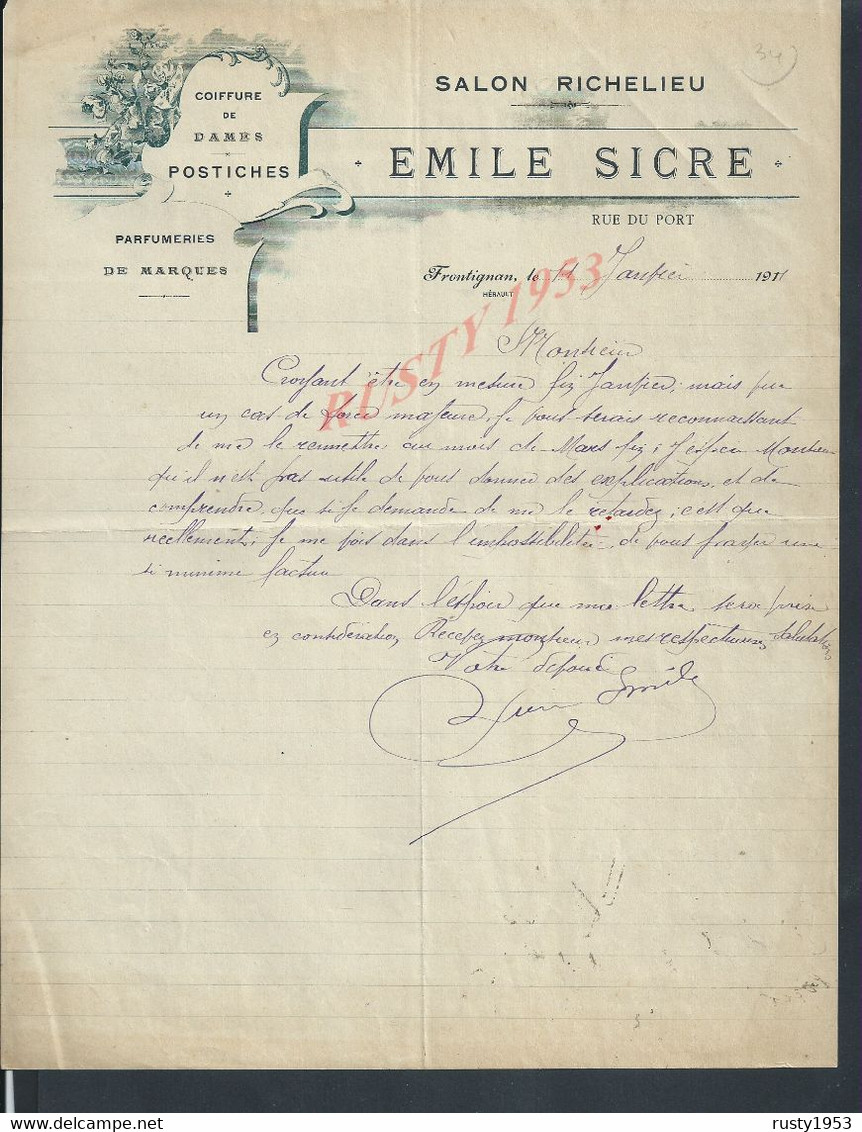 34
SALON RICHELIEU
COIFFURE
DE
DAMES
POSTICHES
EMILE SICRE
RUE DU PORT
PARFUMERIES
DE MARQUES
Frontignan, le Janvier 1911
HÉRAULT
RUSTY 1953
Monsieur
Croyant être en mesure fin Janvier, mais par
un cas de force majeure, je vous serais reconnaissant
de me le remettre au mois de Mars fin; J'espère Monsieur
qu'il n'est pas utile de vous donner des explications, et de
comprendre que si je demande de me le retarder, c'est que
reellement, je me vois dans l'impossibilitée, de vous payer une
si minime facture
Dans l'éspoir que ma lettre sera prise
en considération, Recevez monsieur mes respectueuses Salutations
Votre dévoué
Sicre Emile
delcampe.net
rusty1953